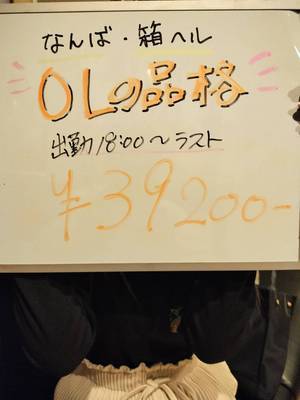 なんば・箱ヘル
OLの品格
出勤18:00〜ラスト
¥39200-